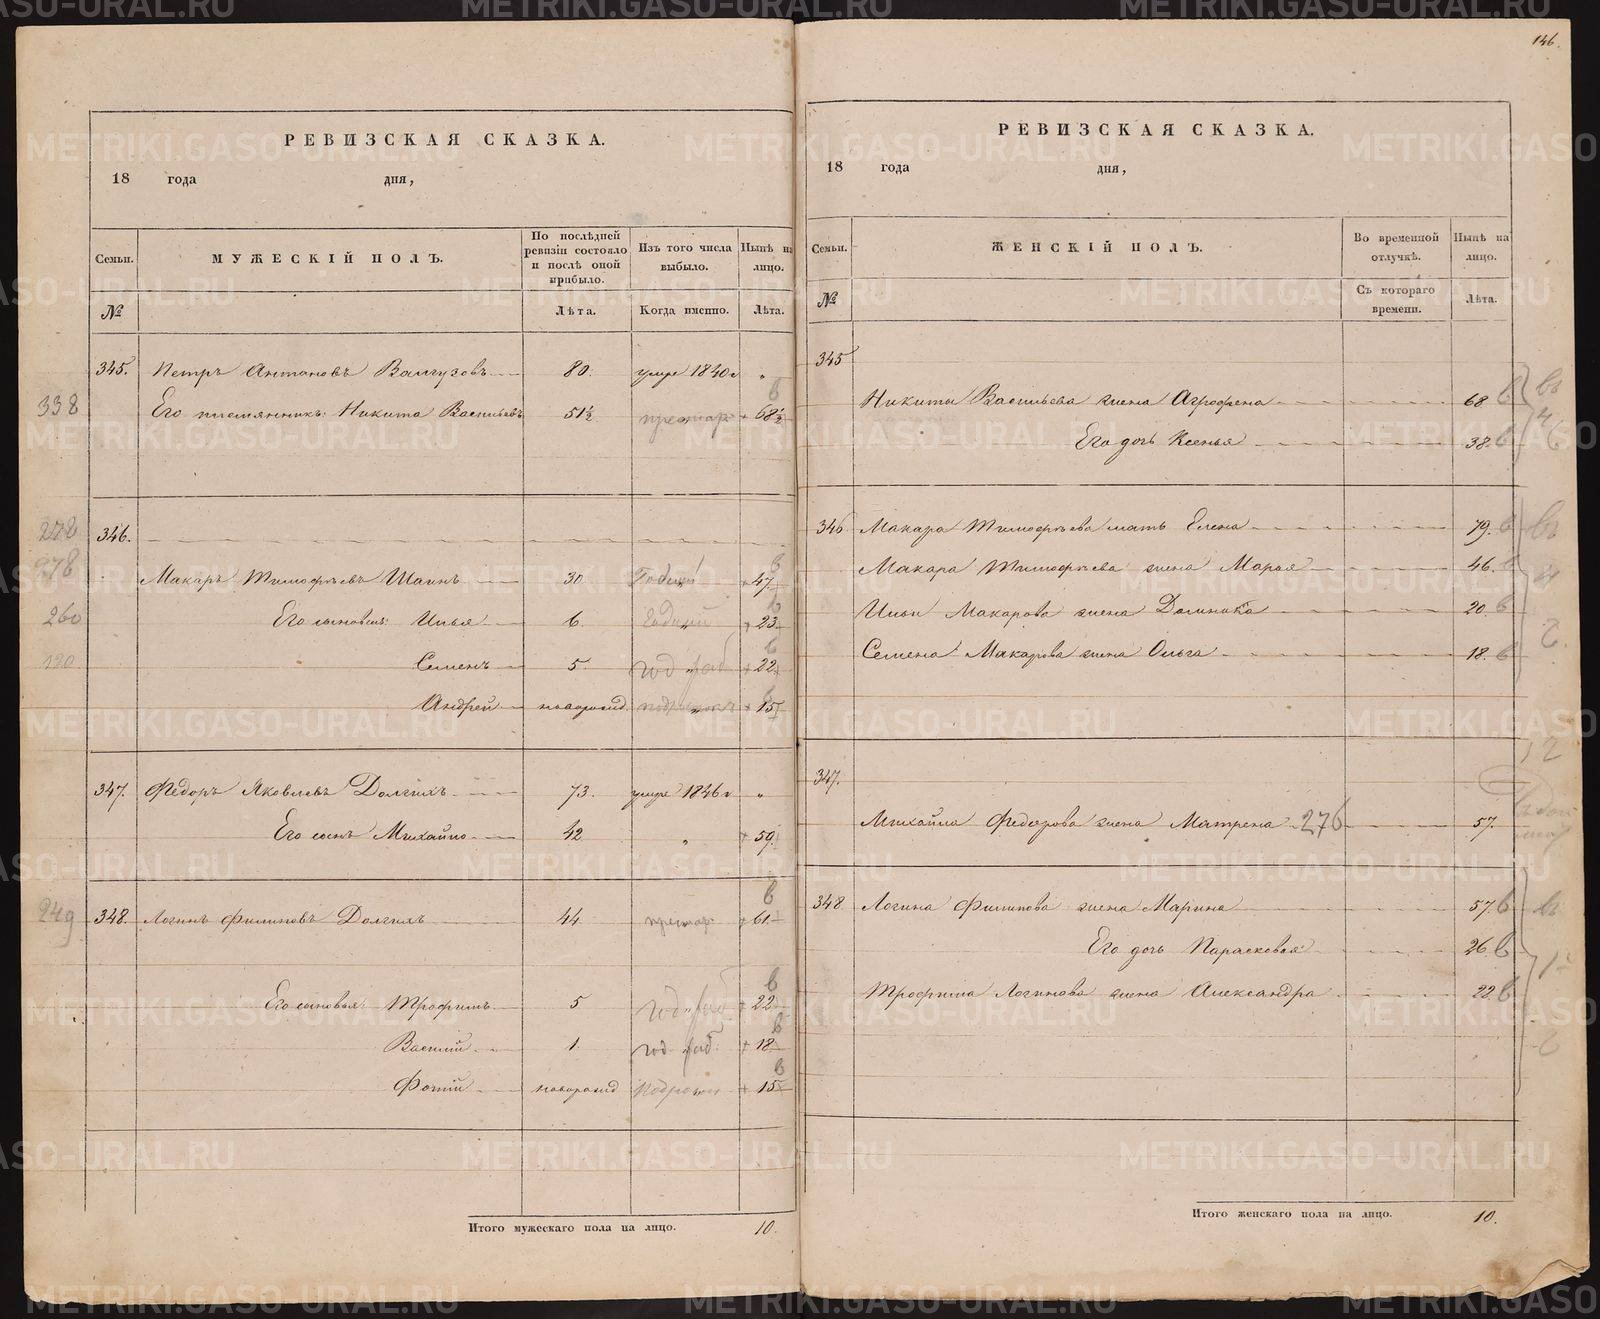 146.
РЕВИЗСКАЯ СКАЗКА.
18 года дня,
Семьи. МУЖЕСКІЙ ПОЛЪ. По послѣдней ревизіи состояло и послѣ оной прибыло. Изъ того числа выбыло. Нынѣ на лицо.
№ Лѣта. Когда именно. Лѣта.
345. Петръ Антановъ 80. умре 1840 г „
338 Его племянникъ: Никита Васильевъ 51½ престар + 68½ в
278 346.
278 Макаръ Тимофѣевъ Шаинъ 30 Годный + 47 в
260 Его сыновья: Илья 6 Годный „ + 23 в
190 Семенъ 5 год „ раб + 22 в
Андрей новорожд. подростокъ „ + 15 в
347. Федоръ Яковлевъ Долгихъ 73. умре 1846 г „
Его сынъ Михайло 42 „ + 59.
249 348. Логинъ Филиповъ Долгихъ 44 престар + 61 в
Его сыновья: Трофимъ 5 год „ раб + 22 в
Василій 1 год раб + 18 в
Фотій новорожд Подрост + 15 в
Итого мужескаго пола на лицо. 10.
РЕВИЗСКАЯ СКАЗКА.
18 года дня,
Семьи. ЖЕНСКІЙ ПОЛЪ. Во временной отлучкѣ. Нынѣ на лицо.
№ Съ котораго времени. Лѣта.
345
Никиты Васильева жена Агрофена 68 в
Его дочь Ксенья 38 в
346 Макара Тимофѣева мать Елена 79. в
Макара Тимофѣева жена Марья 46. в
Ильи Макарова жена 20 в
Семена Макарова жена Ольга 18. в
12
347.
Михайла Федорова жена Матрена 276 57.
348 Логина Филипова жена Марина 57. в
Его дочь Парасковья 26 в
Трофима Логинова жена Александра 22 в
Итого женскаго пола на лицо. 10.
METRIKI.GASO-URAL.RU